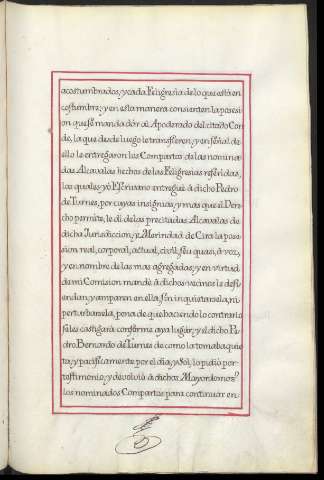 acostumbrados, y cada Feligresia de lo que està en
costumbre; y en esta manera consienten la posesi
on que se manda dàr al Apoderado del citado Con
de, la que desde luego le transfieren; y en señal de
ello le entregaron los Compartos de las nomina
das Alcavalas hechos de las Feligresias referidas,
los quales, yò Escrivano entreguè à dicho Pedro
de Turnes, por cuyas insignias, y mas que el Dere
cho permite, le dì de las precitadas Alcavalas de
dicha Jurisdiccion, y Merindad de Cira la pose
sion real, corporal, actual, civìl, seu quasi, à voz,
y en nombre de las mas agregadas; y en virtud
de mi Comision mandè à dichos vecinos le defi
endan, y amparen en ella, sin inquietarsela, ni
perturbarsela, pena de que haciendo lo contrario
se les castigarà conforme aya lugar; y el dicho Pe
dro Bernardo de Turnes de como la tomaba quie
ta, y pacificamente por el dia, y Sol, lo pidiò por
testimonio, y devolviò à dichos Mayordomos
los nominados Compartos para continuar en